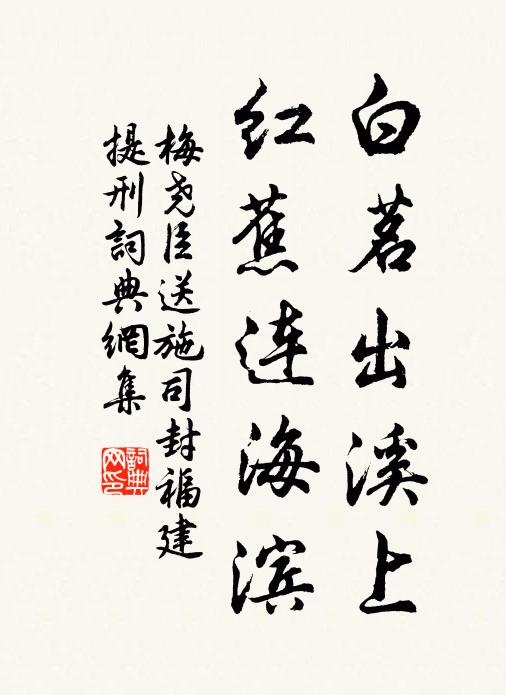 白茗出溪上
红蕉连海滨
梅尧臣送施司封福建
提刑詞典網集
詞典
网印